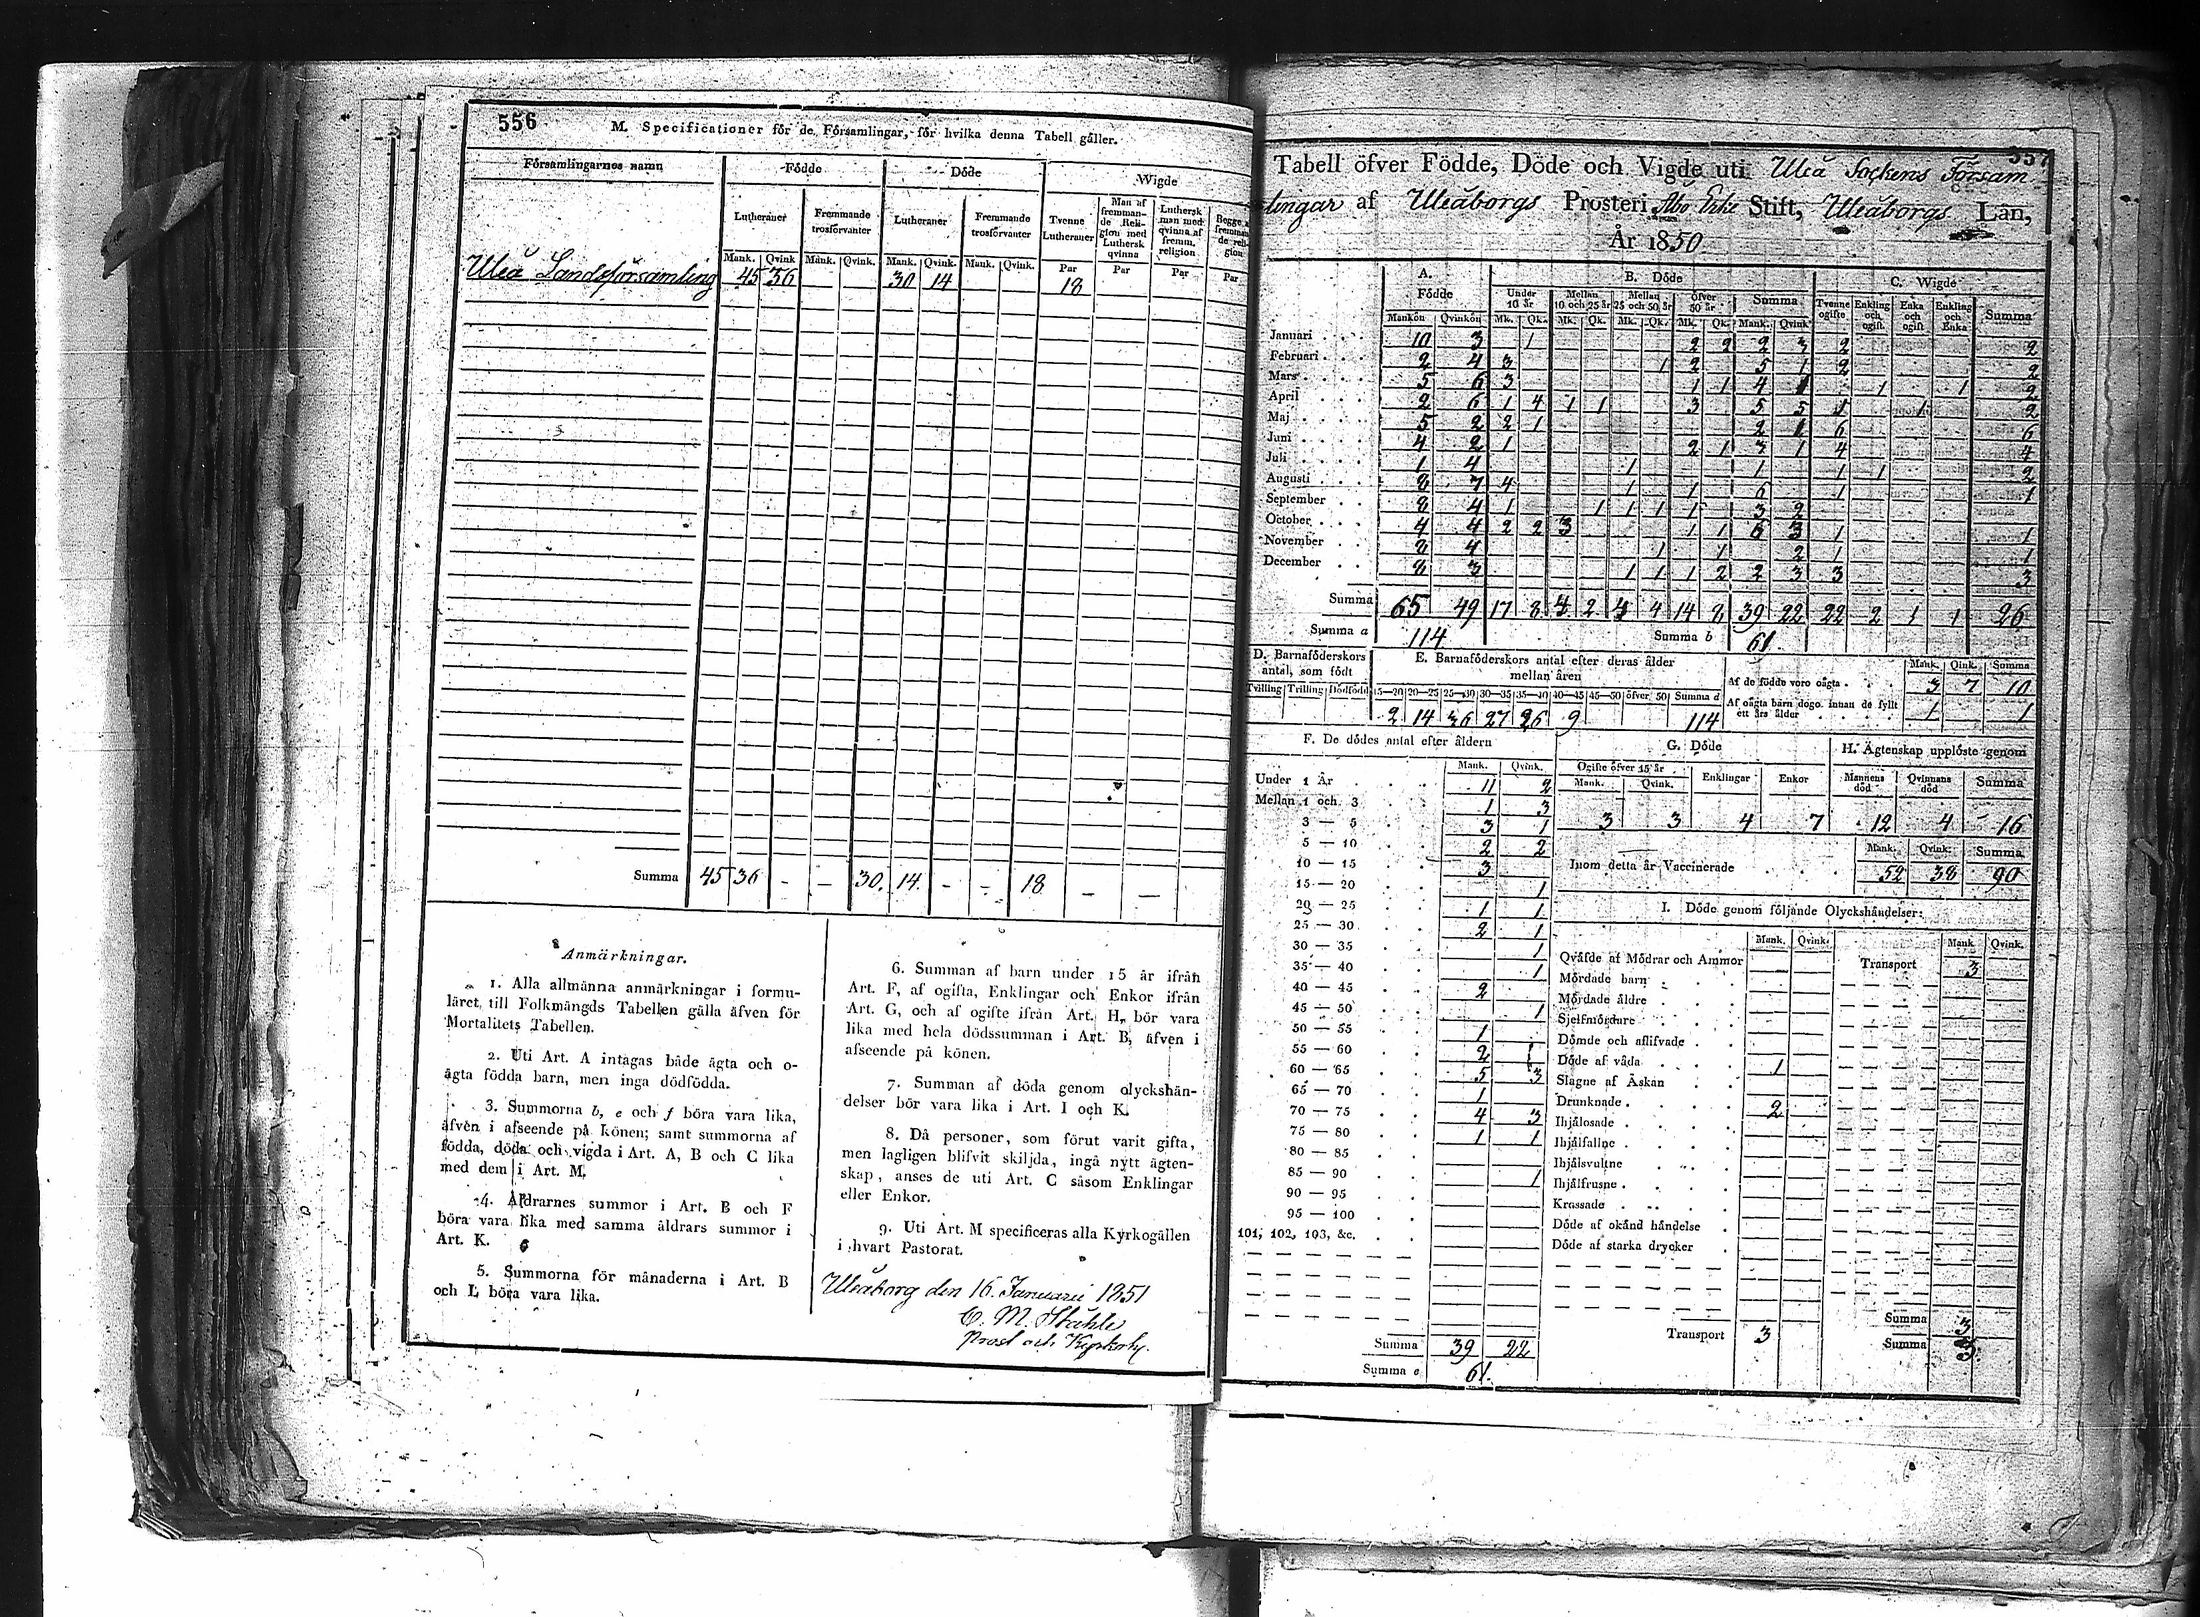 556
M. Specificationer för de Församlingar, för hvilka denna Tabell gäller.
Församlingarnes namn | Födde | Döde | Wigde
Lutheraner | Fremmande trosförvanter | Lutheraner | Fremmande trosförvanter | Tvenne Lutheraner | Man af fremmande Religion med Luthersk qvinna | Luthersk man med qvinna af fremm. religion | Begge af fremmande religion
Mank. Qvink Mank. Qvink. Mank. Qvink. Mank. Qvink. Par Par Par Par
Uleå Landsförsamling 45 36 30 14 18
Summa 45 36 - - 30. 14. - - 18 - -
Anmärkningar.
1. Alla allmänna anmärkningar i formu-
läret till Folkmängds Tabellen gälla äfven för
Mortalitets Tabellen.
2. Uti Art. A intagas både ägta och o-
ägta födda barn, men inga dödfödda.
3. Summorna b, e och f böra vara lika,
äfven i afseende på könen; samt summorna af
födda, döda och vigda i Art. A, B och C lika
med dem i Art. M.
4. Åldrarnes summor i Art. B och F
böra vara lika med samma åldrars summor i
Art. K.
5. Summorna för månaderna i Art. B
och L böra vara lika.
6. Summan af barn under 15 år ifrån
Art. F, af ogifta, Enklingar och Enkor ifrån
Art. G, och af ogifte ifrån Art. H, bör vara
lika med hela dödssumman i Art. B, äfven i
afseende på könen.
7. Summan af döda genom olyckshän-
delser bör vara lika i Art. I och K.
8. Då personer, som förut varit gifta,
men lagligen blifvit skiljda, ingå nytt ägten-
skap, anses de uti Art. C såsom Enklingar
eller Enkor.
9. Uti Art. M specificeras alla Kyrkogällen
i hvart Pastorat.
Uleåborg den 16. Januarii 1851
C. M. Ståhle
Prost och Kyrkoh.
557
Tabell öfver Födde, Döde och Vigde uti Uleå Sockens Församlingar af Uleåborgs Prosteri Åbo Erke Stift, Uleåborgs Län,
År 1850
A. Födde | B. Döde | C. Wigde
Under 10 år | Mellan 10 och 25 år | Mellan 25 och 50 år | öfver 50 år | Summa | Tvenne ogifte | Enkling och ogift. | Enka och ogift | Enkling och Enka | Summa
Mankön Qvinkön Mk. Qk. Mk. Qk. Mk. Qk. Mk. Qk. Mank. Qvink
Januari 10 3 1 2 2 2 3 2 2
Februari 2 4 3 1 2 5 1 2 2
Mars 5 6 3 1 1 4 1 1 1 2
April 2 6 1 4 1 1 3 5 5 1 1 2
Maj 5 2 2 1 2 1 6 6
Juni 4 2 1 2 1 3 1 4 4
Juli 1 4 1 1 1 1 2
Augusti 8 7 4 1 1 6 1 1
September 8 4 1 1 1 1 1 3 2
October 4 4 2 2 3 1 1 6 3 1 1
November 8 4 1 1 2 1 1
December 8 3 1 1 1 2 2 3 3 3
Summa 65 49 17 8 4 2 4 4 14 8 39 22 22 2 1 1 26
Summa a 114 Summa b 61.
D. Barnaföderskors antal, som födt
Tvilling Trilling Dödfödd
E. Barnaföderskors antal efter deras ålder mellan åren
15—20 20—25 25—30 30—35 35—40 40—45 45—50 öfver 50 Summa d
2 14 36 27 26 9 114
Mank. Qink. Summa
Af de födde voro oägta 3 7 10
Af oägta barn dogo innan de fyllt ett års ålder 1 1
F. De dödes antal efter åldern
Mank. Qvink.
Under 1 År 11 2
Mellan 1 och 3 1 3
3 — 5 3 1
5 — 10 2 2
10 — 15 3
15 — 20 1
20 — 25 1 1
25 — 30 2 1
30 — 35 1
35 — 40 1
40 — 45 2
45 — 50 1
50 — 55 1
55 — 60 2 1
60 — 65 5 3
65 — 70 1
70 — 75 4 3
75 — 80 1 1
80 — 85
85 — 90 1
90 — 95
95 — 100
101, 102, 103, &c.
Summa 39 22
Summa e 61.
G. Döde
Ogifte öfver 15 år Enklingar Enkor
Mank. Qvink.
3 3 4 7
H. Ägtenskap upplöste genom
Mannens död Qvinnans död Summa
12 4 16
Mank. Qvink. Summa
Inom detta år Vaccinerade 52 38 90
I. Döde genom följande Olyckshändelser:
Mank. Qvink. Mank Qvink.
Qväfde af Mödrar och Ammor
Mördade barn
Mördade äldre
Sjelfmördare
Dömde och aflifvade
Döde af våda 1
Slagne af Åskan
Drunknade 2
Ihjälosade
Ihjälfallne
Ihjälsvultne
Ihjälfrusne
Krossade
Döde af okänd händelse
Döde af starka drycker
Transport 3
Transport 3
Summa 3
Summa 3.